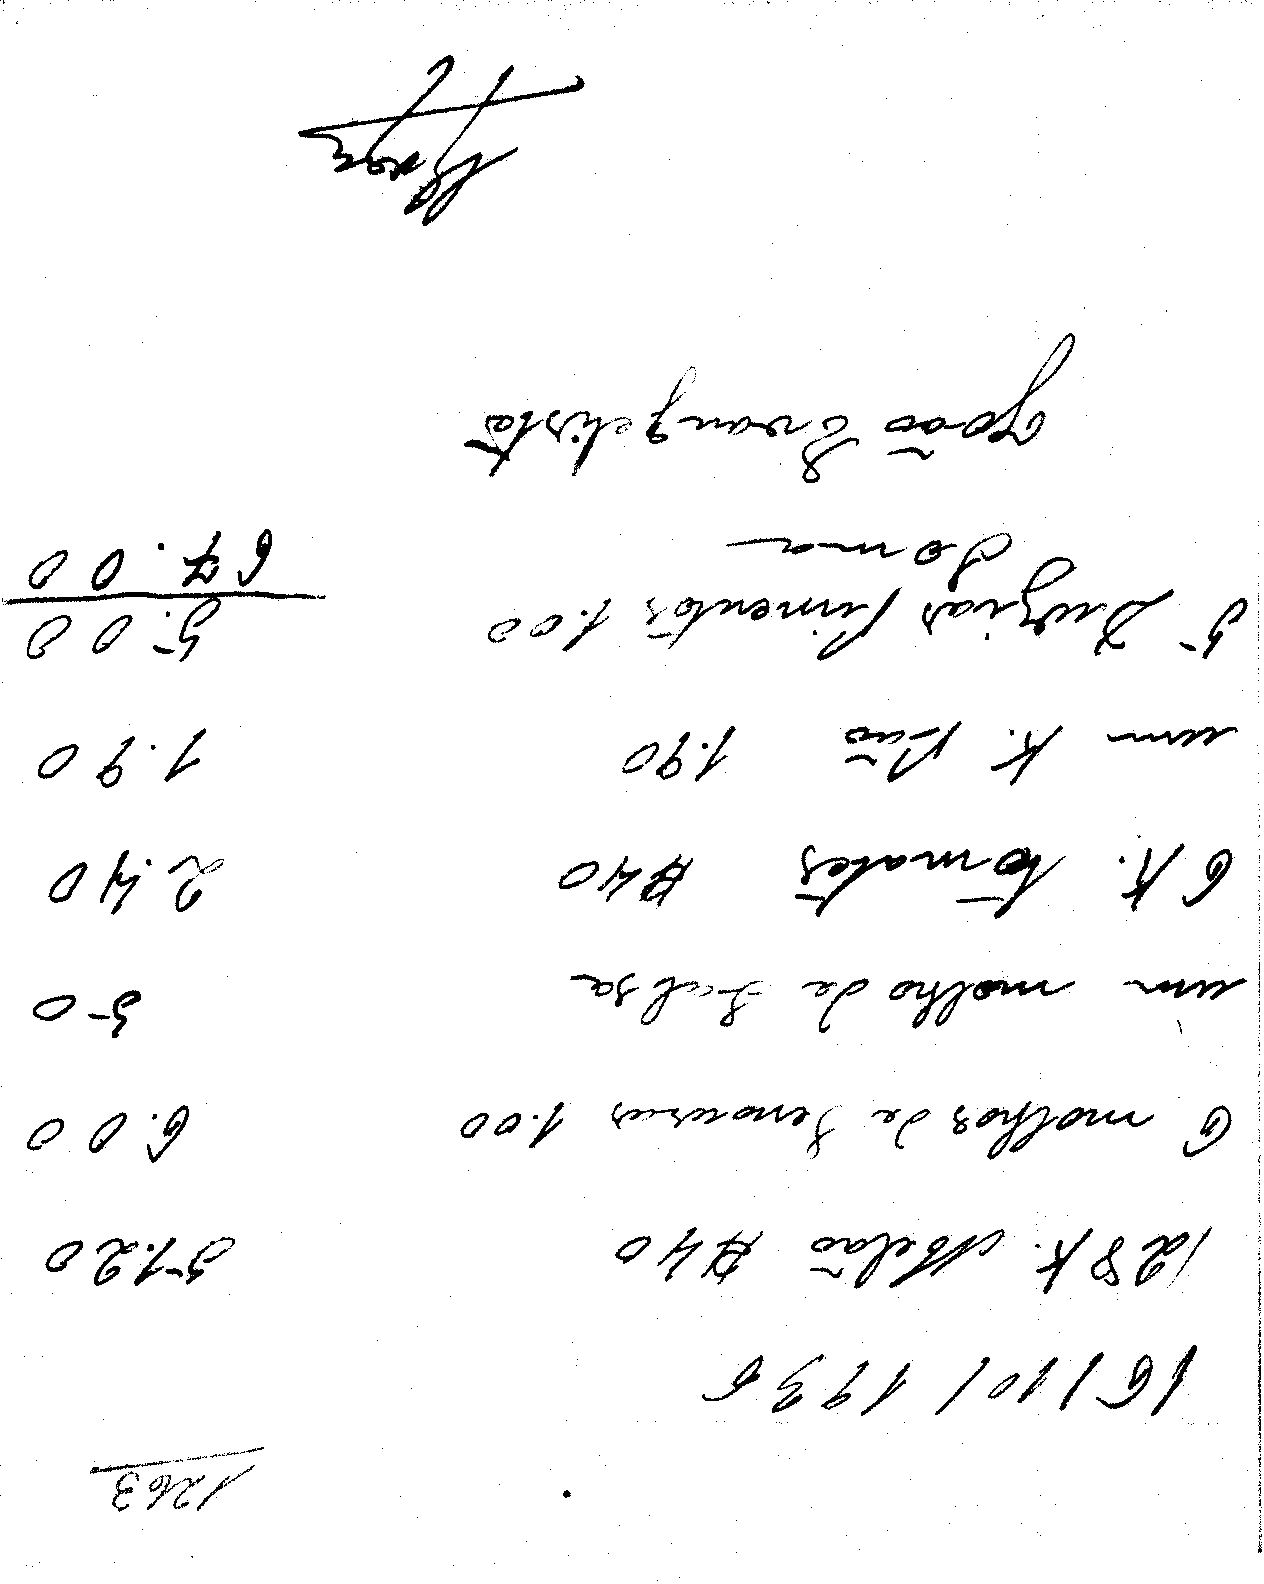 1263
16/10/1935
128 K. Melão $40 51.20
6 molhos de Senouras 1.00 6.00
um molho de Salsa 50
6 K. tomates $40 2.40
um K. pão 1.90 1.90
5 Duzias Pimentos 1.00 5.00
Soma 67.00
João Evangelista